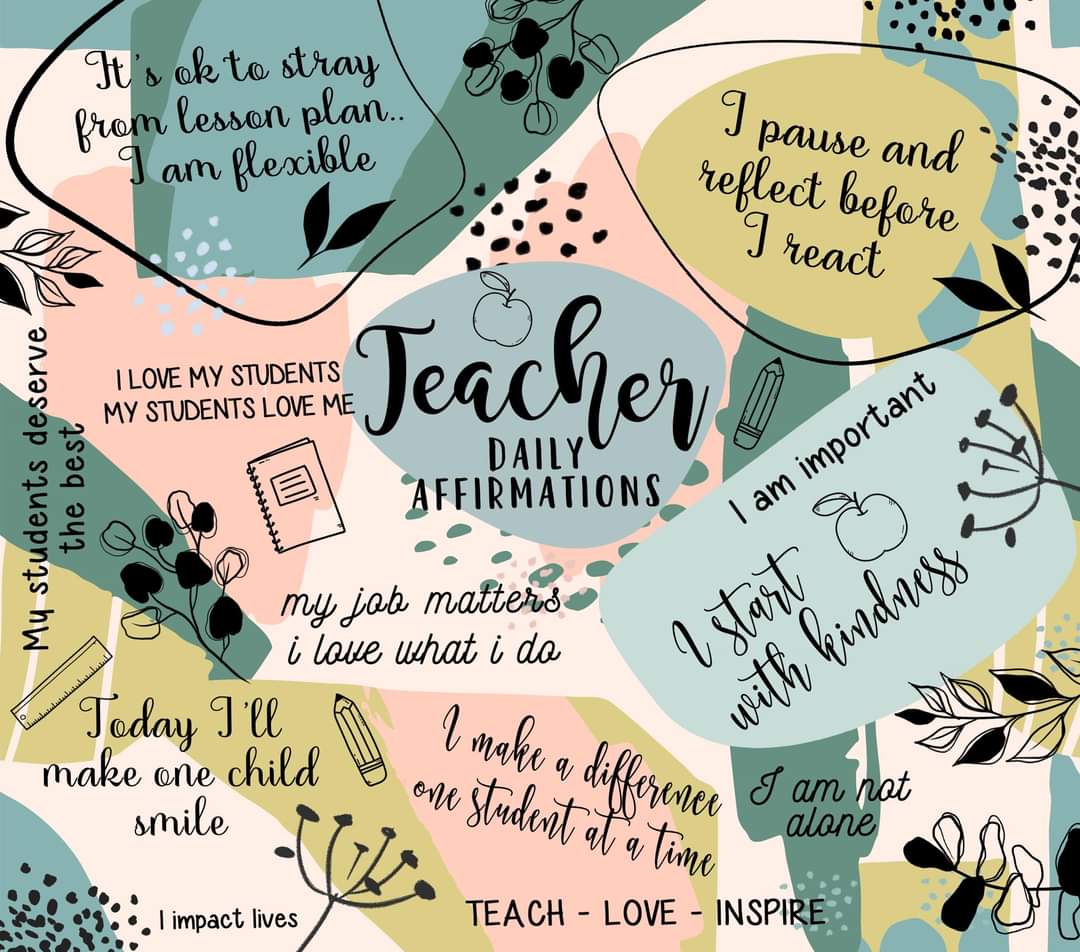 It's ok to stray
from lesson plan..
I am flexible
I pause and
reflect before
I react
Teacher
DAILY
AFFIRMATIONS
I LOVE MY STUDENTS
MY STUDENTS LOVE ME
My students deserve
the best
I am important
I start
with kindness
my job matters
i love what i do
Today I'll
make one child
smile
I make a difference
one student at a time
I am not
alone
I impact lives
TEACH - LOVE - INSPIRE